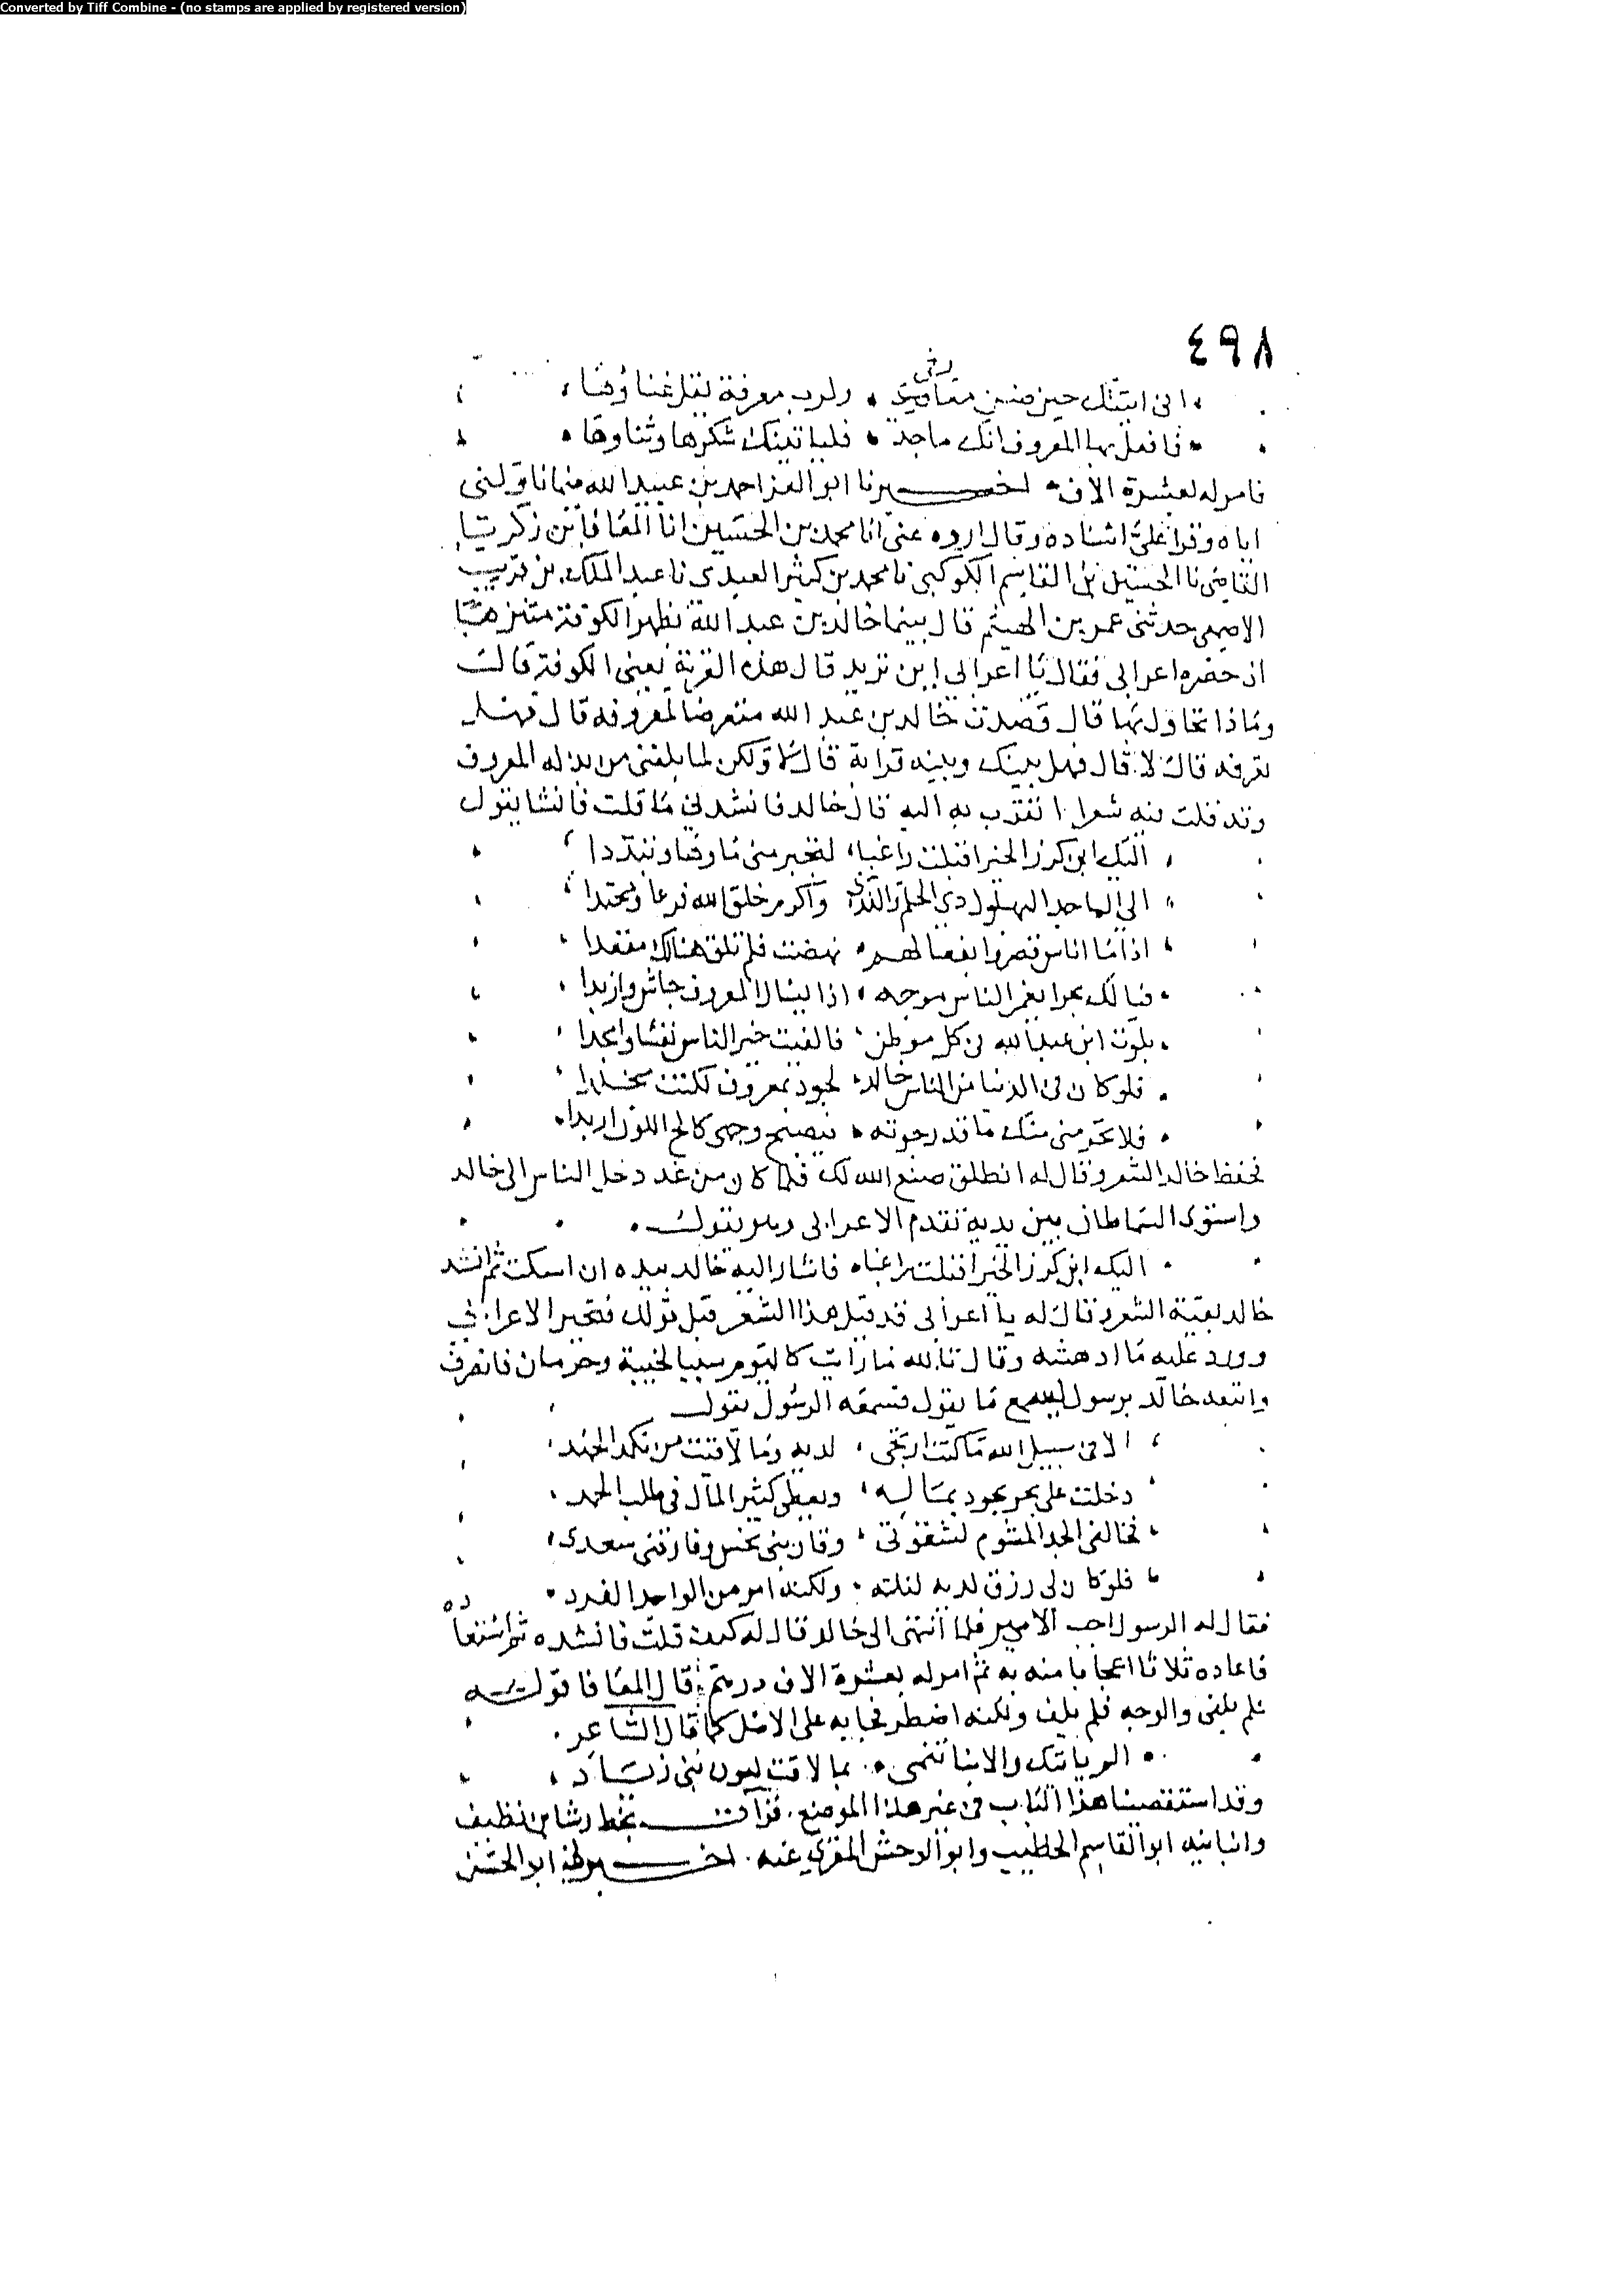 Converted by Tiff Combine - (no stamps are applied by registered version)
٤٩٨
انى اتيتك حين ضن معارفى ولرب معرفة يقل غناؤها
فافعل بها المعروف انك ماجد فلياتينك شكرها وثناوها
فامر له بعشرة الاف اخبرنا ابو العز احمد بن عبيد الله فيما ناولنى
اياه وقرا على اسناده وقال اروه عنى انا محمد بن الحسين انا المعافا بن زكريا
القاضى نا الحسين بن القاسم الكوكبى نا محمد بن كثير العبدى نا عبد الملك بن قريب
الاصمعى حدثنى عمر بن الهيثم قال بينما خالد بن عبد الله بظهر الكوفة متنزها
اذ حضره اعرابى فقال يا اعرابى اين تريد قال هذه القرية يعنى الكوفة قال
وماذا تحاول بها قال قصدت خالد بن عبد الله متعرضا لمعروفه قال فهل
تعرفه قال لا قال فهل بينك وبينه قرابة قال لا ولكن لما بلغنى من بذله المعروف
وقد قلت فيه شعرا اتقرب به اليه قال خالد فانشدنى ما قلت فانشا يقول
اليك ابن كرز الخير اقبلت راغبا لتجبر منى ما وها وتبددا
الى الماجد البهلول ذى الحلم والندى واكرم خلق الله فرعا ومحتدا
اذا ما اناس قصروا بفعالهم نهضت فلم تلق هنالك مقعدا
فيالك بحرا يغمر الناس موجه اذا يسال المعروف جاش وازبدا
بلوت ابن عبد الله فى كل موطن فالفيت خير الناس نفسا وامجدا
فلو كان فى الدنيا من الناس خالد لجود بمعروف لكنت مخلدا
فلا تحرمنى منك ما قد رجوته فيصبح وجهى كالح اللون اربدا
فحفظ خالد الشعر وقال له انطلق صنع الله لك فلما كان من غد دخل الناس الى خالد
واستوى السماطان بين يديه تقدم الاعرابى وهو يقول
اليك ابن كرز الخير اقبلت راغبا فاشار اليه خالد بيده ان اسكت ثم انشد
خالد بقية الشعر وقال له يا اعرابى قد قيل هذا الشعر قبل قولك فتحير الاعرابى
وورد عليه ما ادهشه وقال تالله ما رايت كاليوم سببا لخيبة وحرمان فانصرف
واتبعه خالد برسول ليسمع ما يقول فسمعه الرسول يقول
الا فى سبيل الله ما كنت ارتجى لديه وما لاقيت من نكد الجهد
دخلت على بحر يجود بماله ويعطى كثير المال فى طلب الحمد
فخالفنى الجد المشوم لشقوتى وقاربنى نحسى وفارقنى سعدى
فلو كان لى رزق لديه لنلته ولكنه امر من الواحد الفرد
فقال له الرسول اجب الامير فلما انتهى الى خالد قال له كيف قلت فانشده ثم استعاده
فاعاده ثلاثا اعجابا منه به ثم امر له بعشرة الاف درهم قال المعافا قوله
فلم يلقى والوجه فلم يلق ولكنه اضطر فجا به على الاصل كما قال الشاعر
الم ياتيك والانبا تنمى بما لاقت لبون بنى زياد
وقد استقصينا هذا الباب فى غير هذا الموضع قرات بخط رشا بن نظيف
وانبانيه ابو القاسم الخطيب وابو الوحش المقرى عنه اخبرنى ابو الحسن